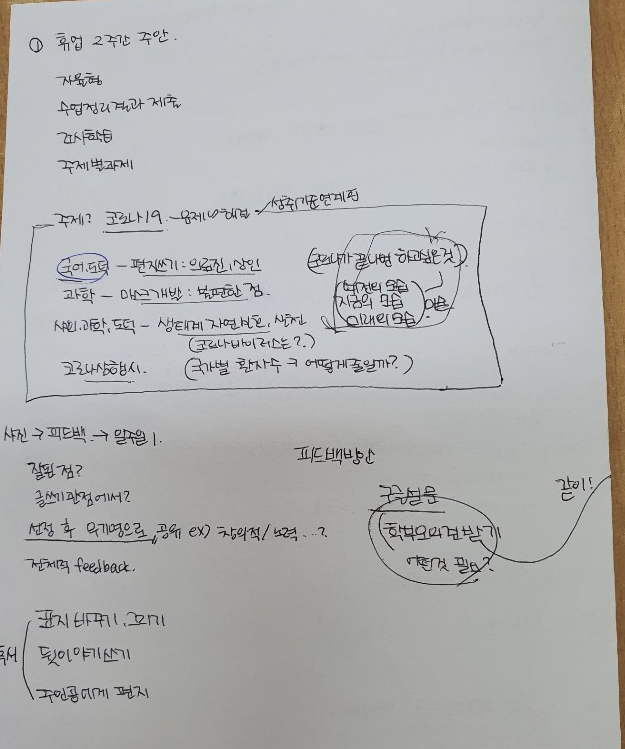 ① 휴업 2주간 주안.
자율형
수업정리결과 제출
감사학습
주제별과제
주제? 코로나19 - 문제와 해결 성취기준연계형
국어, 도덕 - 편지쓰기 : 의료진, 상인
(코로나가 끝나면 하고싶은것)
과학 - 마스크개발 : 불편한 점.
예전의 모습
지금의 모습
미래의 모습
미술
사회, 과학, 도덕 - 생태계 자연보호, 실천
(코로나바이러스는?)
코로나상황시. (국가별 환자수 → 어떻게줄일까?)
사진 → 피드백 → 일주일 1.
피드백방안
잘된 점?
글쓰기 관점에서?
선정 후 익기명으로, 공유 ex) 창의적/노력...?
전체적 feedback.
구글설문
같이!
학부모의견받기
어떤것 필요?
독서
표지 바꾸기, 꾸미기
뒷이야기쓰기
주인공에게 편지